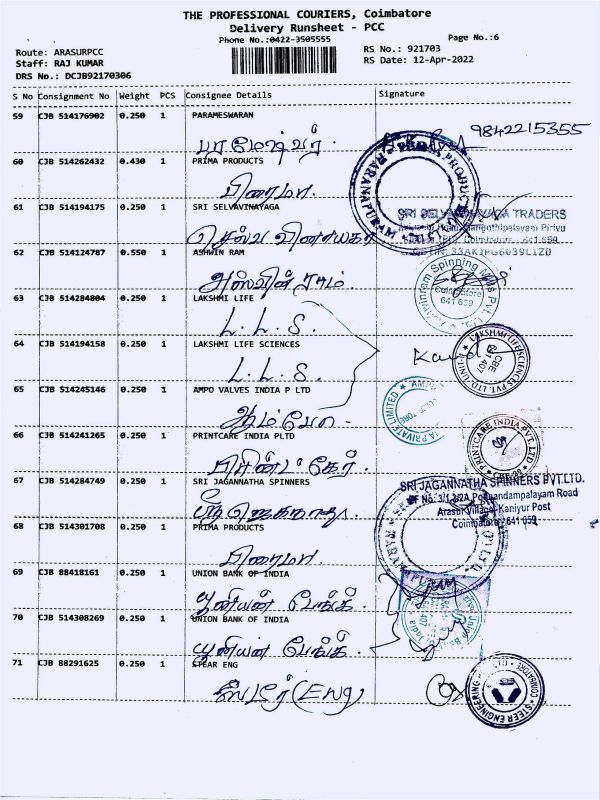 THE PROFESSIONAL COURIERS, Coimbatore
Delivery Runsheet - PCC
Phone No.:0422-3505555
Page No.:6
Route: ARASURPCC
Staff: RAJ KUMAR
DRS No.: DCJB92170306
RS No.: 921703
RS Date: 12-Apr-2022
S No Consignment No Weight PCS Consignee Details Signature
59 CJB 514176902 0.250 1 PARAMESWARAN
பரமேஷ்வர்
9842215355
60 CJB 514262432 0.430 1 PRIMA PRODUCTS
பிரைமா
61 CJB 514194175 0.250 1 SRI SELVAVINAYAGA
செல்வ விநாயகா
SRI SELVAVINAYAGA TRADERS
62 CJB 514124787 0.550 1 ASHWIN RAM
அஸ்வின் ராம்
Ashwinram Spinning Mills Pvt. Ltd.
Coimbatore
641 659
63 CJB 514284804 0.250 1 LAKSHMI LIFE
L.L.S.
64 CJB 514194158 0.250 1 LAKSHMI LIFE SCIENCES
L.L.S.
LAKSHMI LIFE SCIENCES PVT. LTD.
CBE
641 407
65 CJB 514245146 0.250 1 AMPO VALVES INDIA P LTD
ஆம்போ
66 CJB 514241265 0.250 1 PRINTCARE INDIA PLTD
பிரிண்ட் கேர்
PRINTCARE INDIA PVT. LTD
67 CJB 514284749 0.250 1 SRI JAGANNATHA SPINNERS
ஸ்ரீ ஜெகநாதா
SRI JAGANNATHA SPINNERS PVT.LTD.
SF No. 3/1,3/2A, Pothiandampalayam Road
Arasur Village, Kaniyur Post
Coimbatore - 641 659
68 CJB 514301708 0.250 1 PRIMA PRODUCTS
பிரைமா
69 CJB 88418161 0.250 1 UNION BANK OF INDIA
யூனியன் பேங்க்
70 CJB 514308269 0.250 1 UNION BANK OF INDIA
யூனியன் பேங்க்
71 CJB 88291625 0.250 1 STEAR ENG
ஸ்டீர் (Eng)
STEER ENGINEERING
COIMBATORE